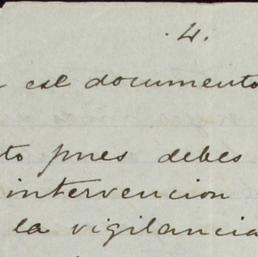 .4.
ese documento
to pues debes
intervencion
la vigilancia